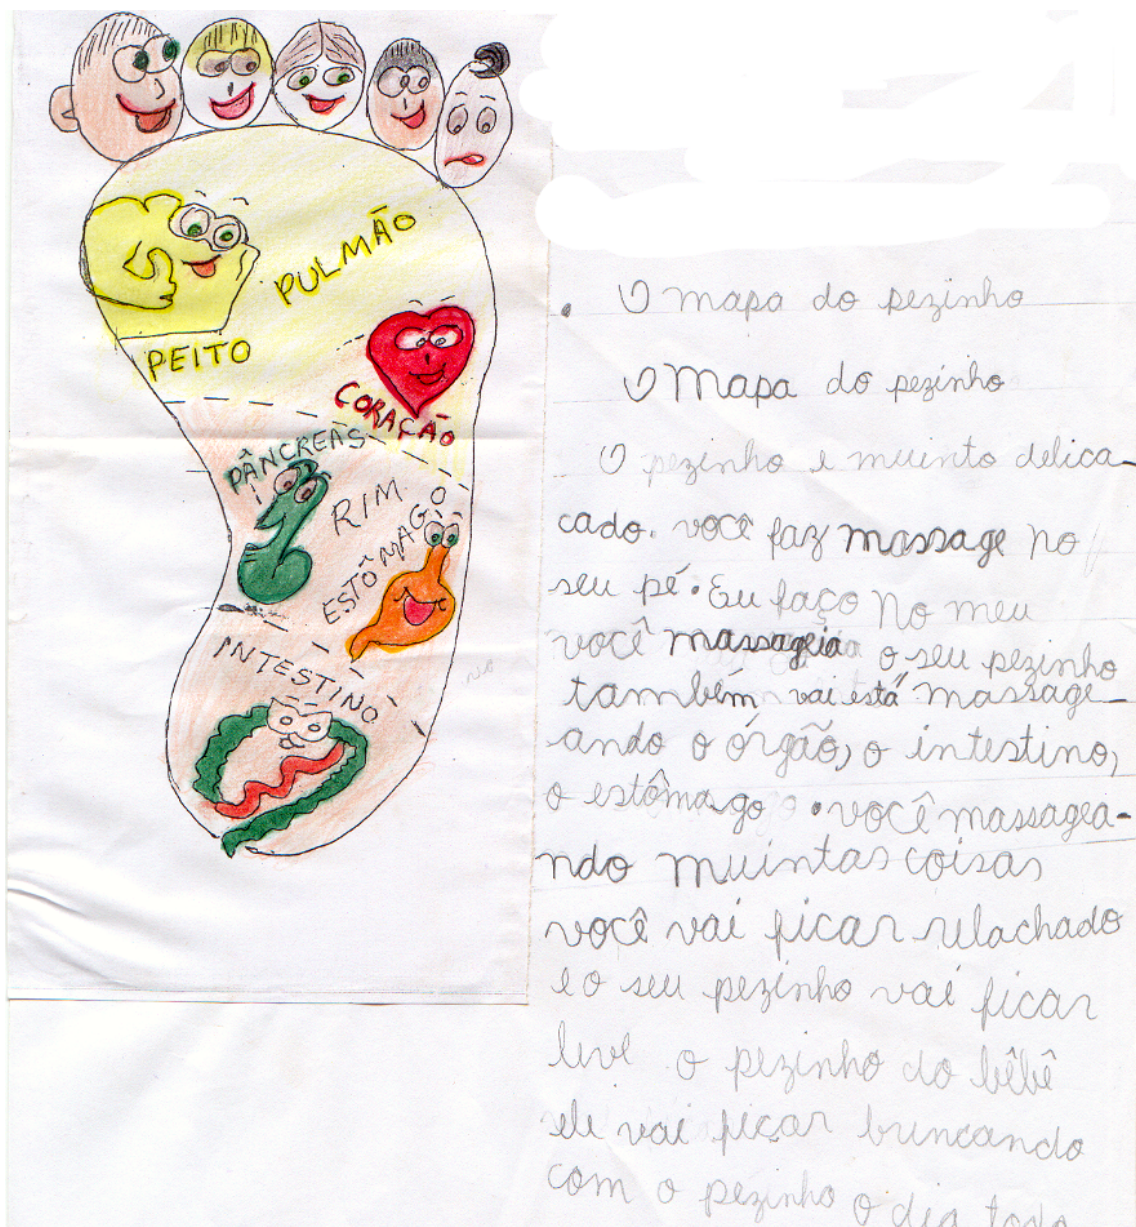 PULMÃO
PEITO
CORAÇÃO
PÂNCREÁS
RIM
ESTÔMAGO
INTESTINO
O mapa do pezinho
O Mapa do pezinho
O pezinho e muinto delica-
cado. você faz massage no
seu pé. Eu faço No meu
você massageia o seu pezinho
também vai está massage-
ando o órgão, o intestino,
o estômago. você massagea-
ndo muintas coisas
você vai ficar relachado
e o seu pezinho vai ficar
leve o pezinho do bêbê
ele vai ficar brincando
com o pezinho o dia todo